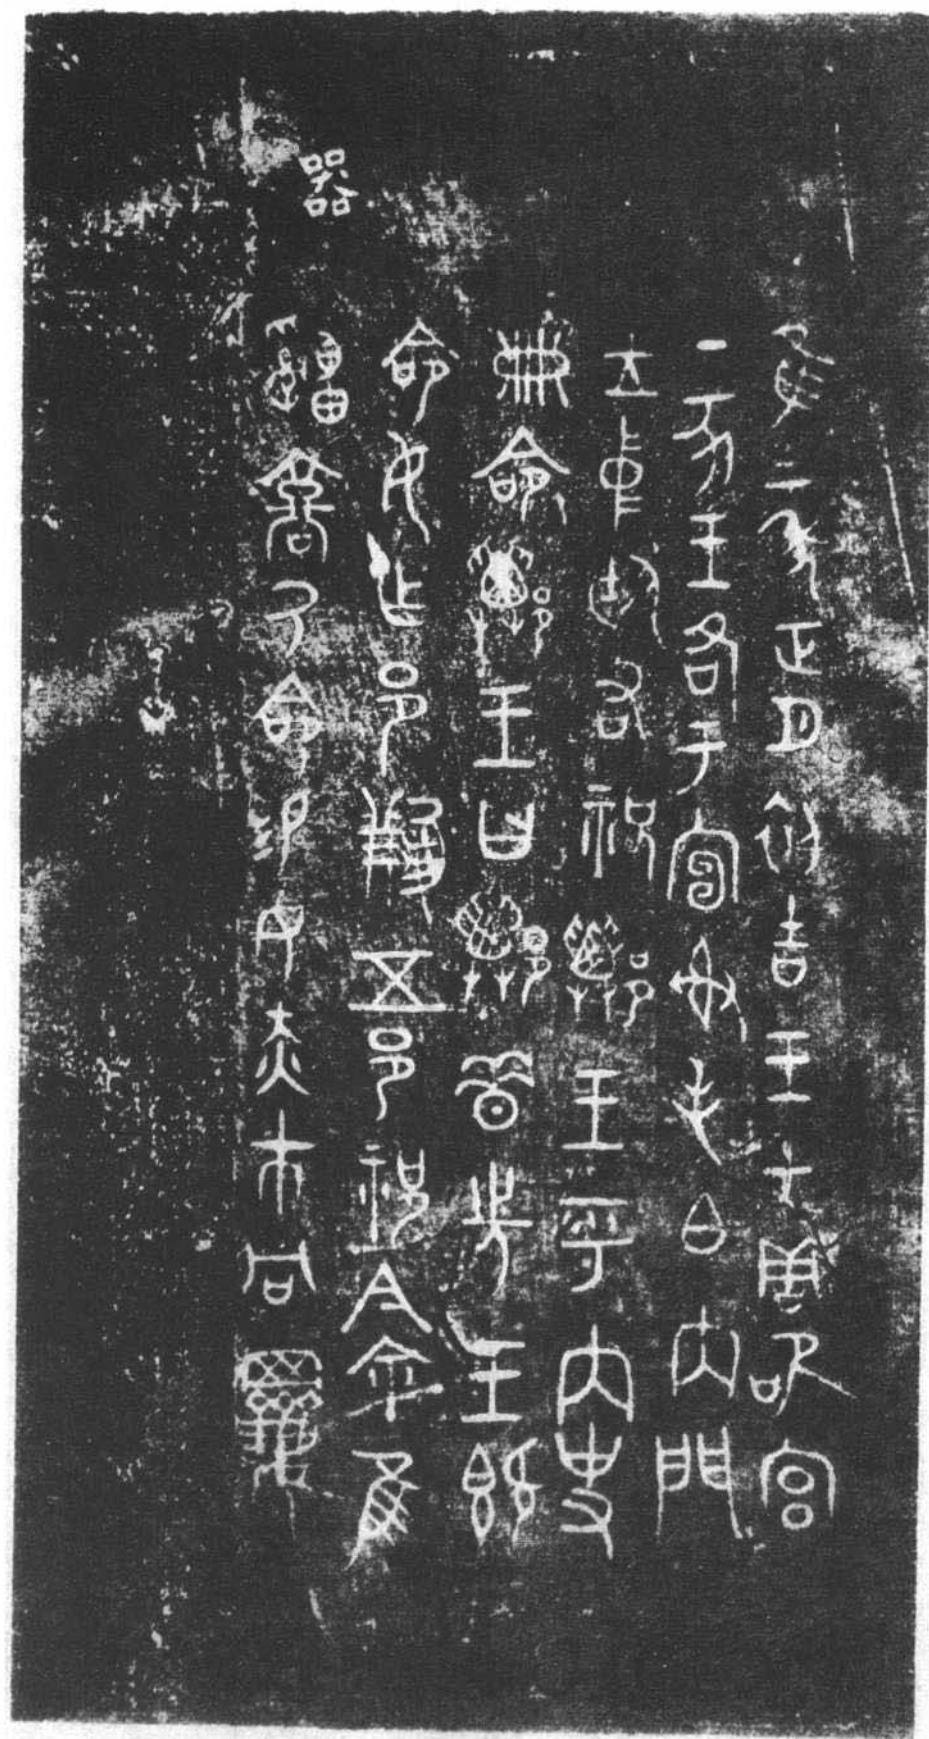 器
隹二年正月初吉王才周卲宮
丁亥王各于宣射毛白內門
立中廷右祝鄻王乎內史
冊命鄻王曰鄻昔先王既
命女乍邑五邑祝今余隹
乃命易女赤巿冋